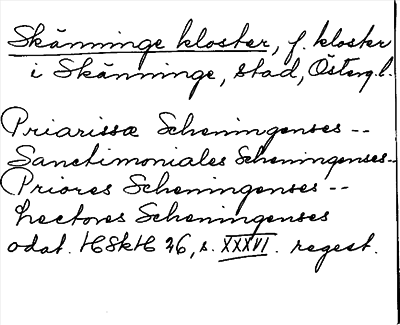 Skänninge kloster, f. kloster
i Skänninge, stad, Österg.l.
Priarissæ Scheningenses --
Sanctimoniales Scheningenses--
Priores Scheningenses --
Lectores Scheningenses
odat. HSkH 26, s. XXXVI. regest.